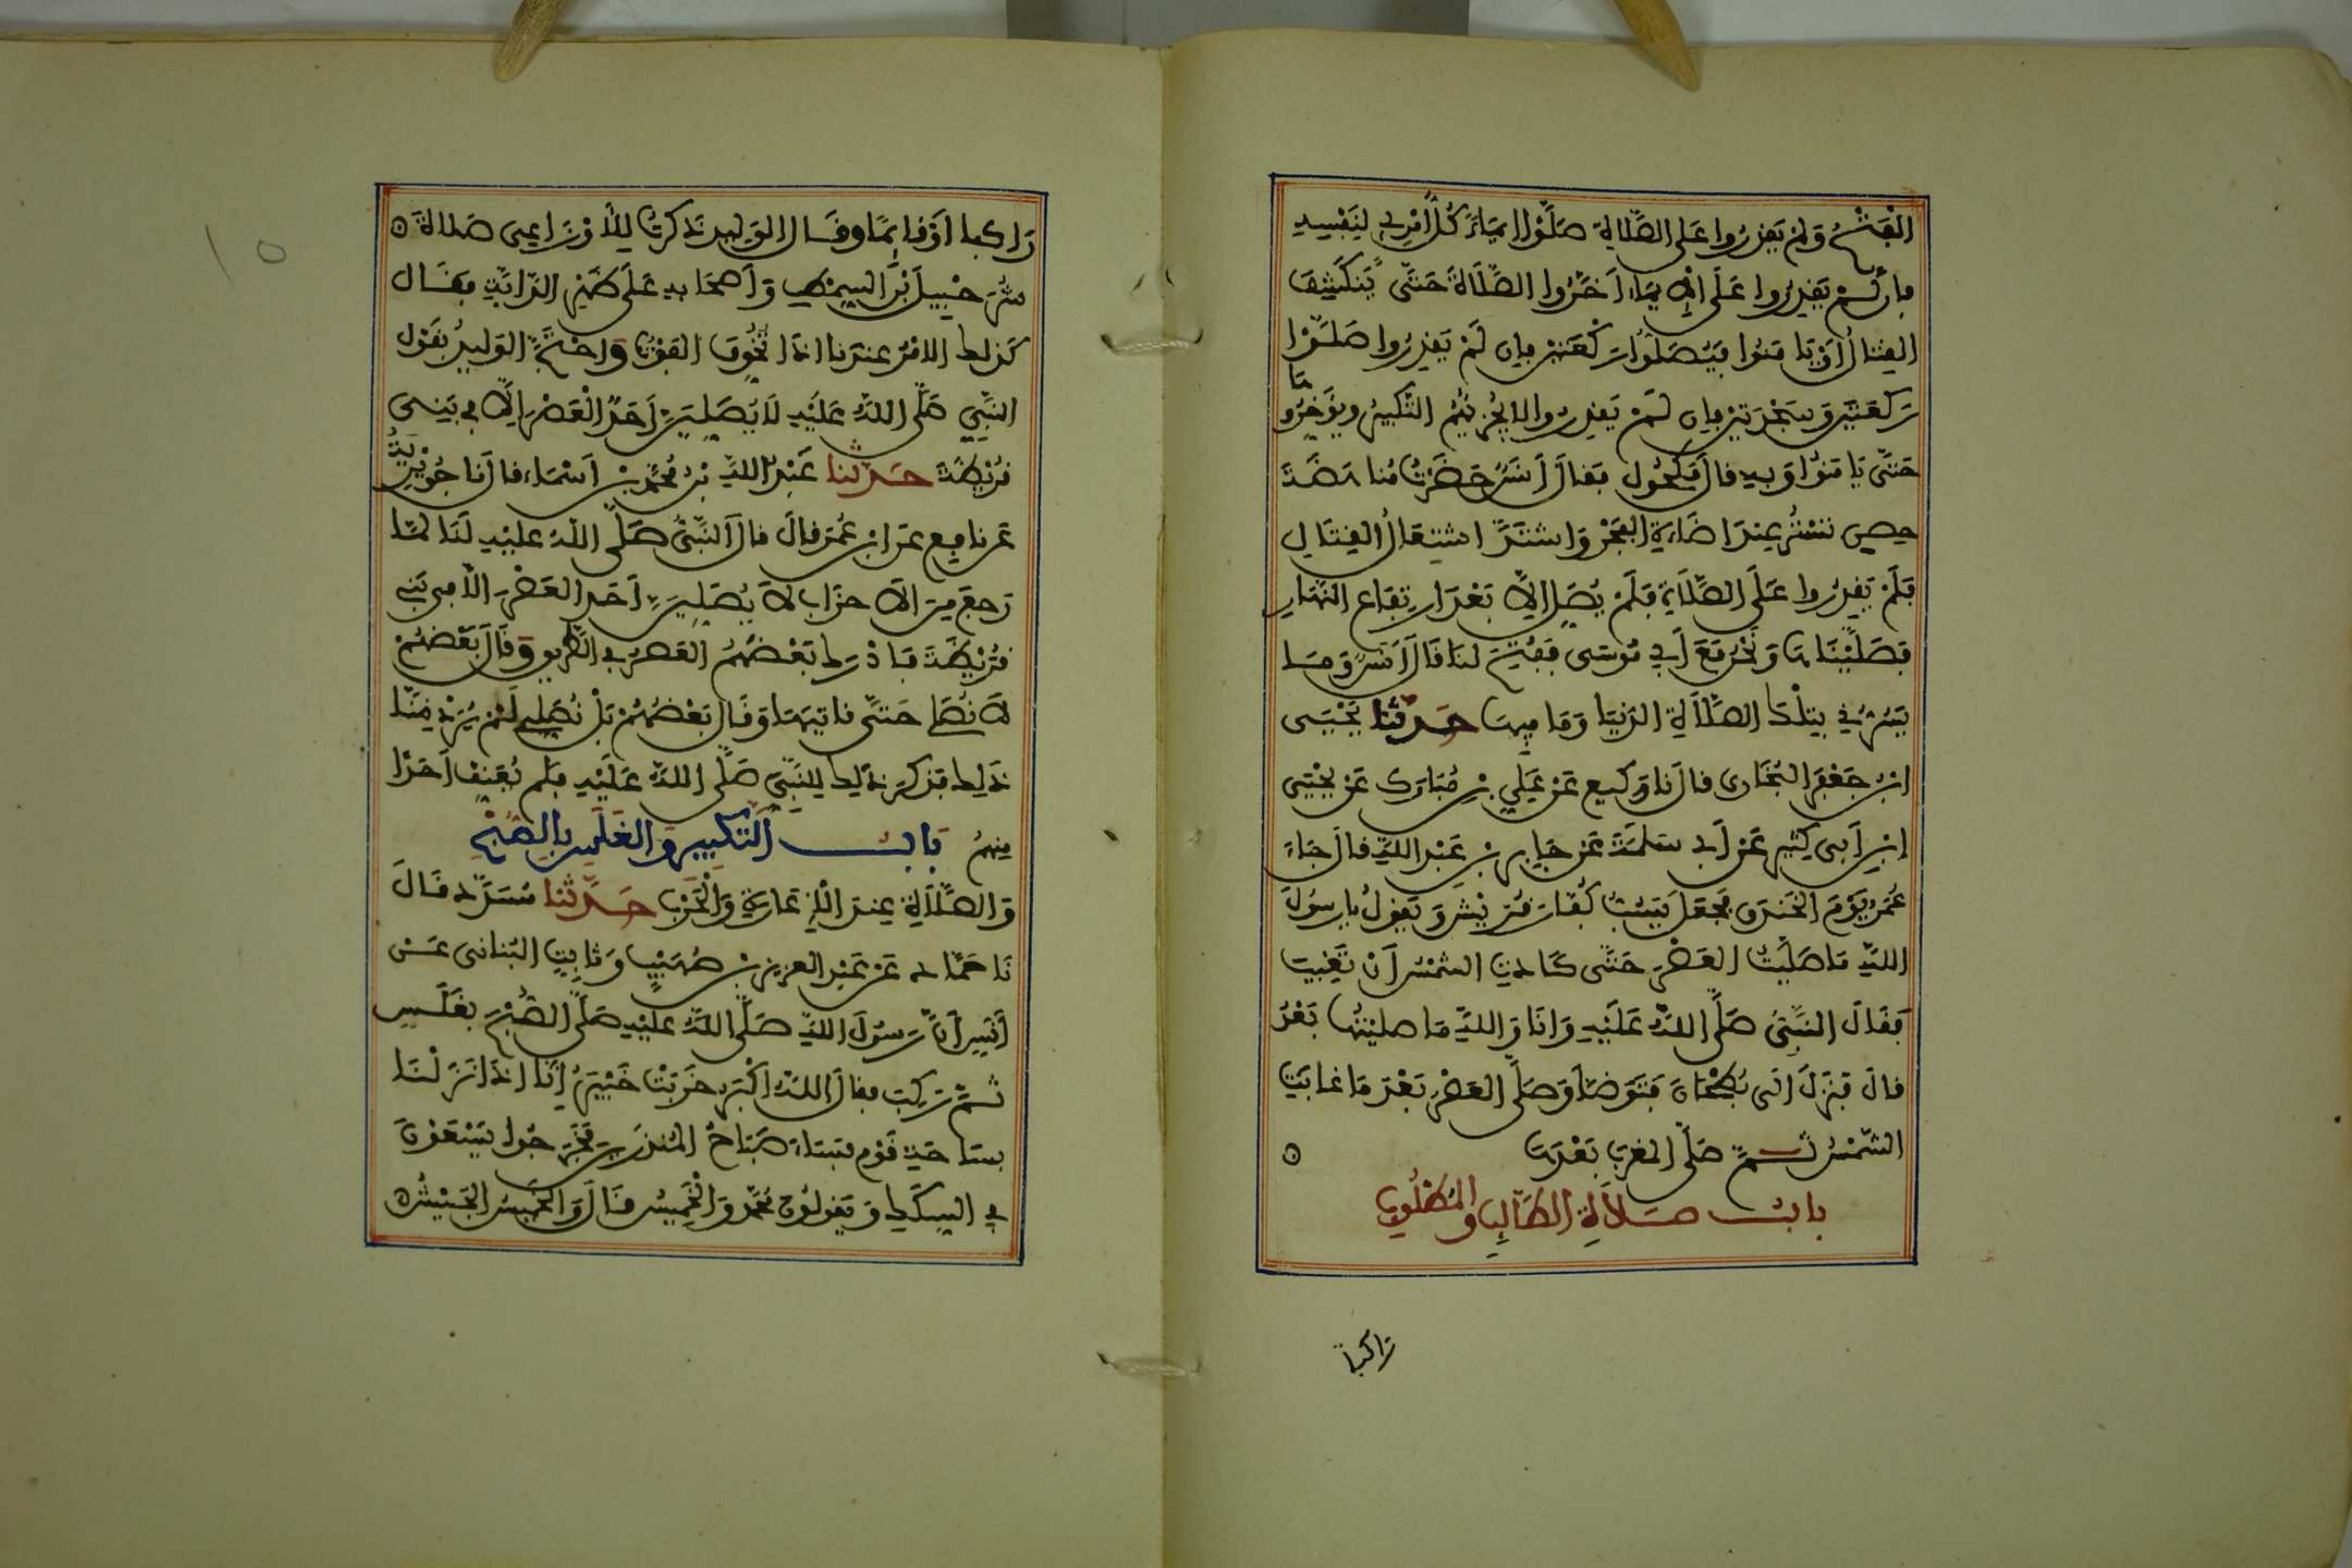 الْفَتْحُ وَلَمْ يَقْدِرُوا عَلَى الصَّلَاةِ صَلَّوْا إِيمَاءً كُلُّ امْرِئٍ لِنَفْسِهِ
فإن لَمْ يَقْدِرُوا عَلَى الْإِيمَاءِ أَخَّرُوا الصَّلَاةَ حَتَّى يَنْكَشِفَ
القِتالُ أَوْ يَامَنُوا فَيُصَلُّوا رَكْعَتَيْنِ فإن لَمْ يَقْدِرُوا صَلَّوْا
رَكْعَةً وسَجْدَتَيْنِ فإن لَمْ يَقْدِرُوا لا يُجْزِئُهُمُ التَّكْبِيرُ ويُؤَخِّرُوهَا
حَتَّى يَامَنُوا وَبِهِ قالَ مَكْحُولٌ فَقالَ أَنَسٌ حَضَرْتُ مُناهَضَةَ
حِصْنِ تُسْتَرَ عِنْدَ إِضَاءَةِ الفَجْرِ وَاشْتَدَّ اشْتِعَالُ القِتَالِ
فَلَمْ يَقْدِرُوا عَلَى الصَّلَاةِ فَلَمْ يُصَلِّ إِلَّا بَعْدَ ارْتِفَاعِ النَّهَارِ
فَصَلَّيْنَاهَا وَنَحْنُ مَعَ أَبِي مُوسَى فَفُتِحَ لَنَا قَالَ أَنَسٌ وَمَا
يَسُرُّنِي بِتِلْكَ الصَّلَاةِ الدُّنْيَا وَمَا فِيهَا حَدَّثَنَا يَحْيَى
ابْنُ جَعْفَرٍ البُخَارِى قالَ نا وَكِيعٌ عَنْ عَلِيِّ بْنِ مُبَارَكٍ عَنْ يَحْيَى
ابْنِ أَبِى كَثِيرٍ عَنْ أَبِي سَلَمَةَ عَنْ جَابِرِ بْنِ عَبْدِ اللهِ قالَ جَاءَ
عُمَرُ يَوْمَ الخَنْدَقِ فَجَعَلَ يَسُبُّ كُفَّارَ قُرَيْشٍ وَيَقُولُ يارسُولَ
اللهِ مَا صَلَّيْتُ العَصْرَ حَتَّى كَادَتِ الشَّمْسُ أَنْ تَغِيبَ
فَقَالَ النَّبِيُّ صَلَّى اللهُ عَلَيْهِ وَأَنَا وَاللهِ مَا صليْتُها بَعْدُ
قالَ فَنَزَلَ إِلَى بُطْحَانَ فَتَوَضَّأَ وَصَلَّى العَصْرَ بَعْدَ مَا غابَتِ
الشَّمْسُ ثُمَّ صَلَّى المغرِبَ بَعْدَهَا
بابُ صَلَاةِ الطَّالِبِ والمَطْلُوبِ
رَاكباً
رَاكبا أَوْ قائِمًا وقَالَ الوَلِيدُ ذَكَرْتُ لِلْأَوْزَاعِى صَلاةَ
شُرَحْبِيلَ بْنِ السِّمْطِ وَأَصْحَابِهِ عَلَى ظَهْرِ الدَّابَّةِ فقَالَ
كَذلِكَ الامْرُ عِنْدَنا إذَا تُخُوِّفَ الفَوْتُ وَاحْتَجَّ الوَلِيدُ بقَوْلِ
النَّبِيِّ صَلَّى اللهُ عَلَيْهِ لَا يُصَلِّيَنَّ أَحَدٌ الْعَصْرَ إِلَّا فِي بَنِى
قُرَيْظَةَ حَدَّثَنا عَبْدُ اللهِ بْنُ مُحَمَّدِ بْنِ أَسْمَاءَ قالَ نَا جُوَيْرِيَةُ
عَنْ نافِعٍ عَنِ ابْنِ عُمَرَ قالَ قالَ النَّبِيُّ صَلَّى اللهُ عَلَيْهِ لَنَا لَمَّا
رَجَعَ مِنَ الأَحزَابِ لَا يُصَلِّيَنَّ أَحَدٌ العَصْرَ إِلَّا فِى بَنِي
قُرَيْظَةَ فَأَدْرَكَ بَعْضُهُمُ العَصْرُ فِي الطَّرِيقِ وَقَالَ بَعْضُهُمْ
لَا نُصَلِّي حَتَّى ناتِيَهَا وَقَالَ بَعْضُهُمْ بَلْ نُصَلِّي لَمْ يُرَدْ مِنَّا
ذَلِكَ فَذُكِرَ ذَلِكَ لِلنَّبِيِّ صَلَّى اللهُ عَلَيْهِ فَلَم يُعَنِّفْ أَحَدًا
مِنْهُمْ بَابُ التَّكْبِيرِ وَالغَلَسِ بِالصُّبْحِ
وَالصَّلَاةِ عِنْدَ الْإِغَارَةِ وَالْحَرْبِ حَدَّثَنا مُسَدَّدٌ قَالَ
نَا حَمَّادٌ عَنْ عَبْدِ العزِيزِ بْنِ صُهَيْبٍ وَثَابِتٍ البُنانِى عَنْ
أَنَسٍ أَنَّ رَسُولَ اللهِ صَلَّى اللهُ عَلَيْهِ صَلَّى الصُّبْحَ بِغَلَسٍ
ثُمَّ رَكِبَ فقالَ اللهُ أَكْبَرُ خَرِبَتْ خَيْبَرُ إِنَّا إِذَا نَزَلْنَا
بِسَاحَةِ قَوْمٍ فَسَاءَ صَبَاحُ المُنْذَرِينَ فَخَرَجُوا يَسْعَوْنَ
فِي السِّكَكِ وَيَقُولُونَ مُحَمَّدٌ وَالْخَمِيسُ قَالَ وَالْخَمِيسُ الجَيْشُ
١٥